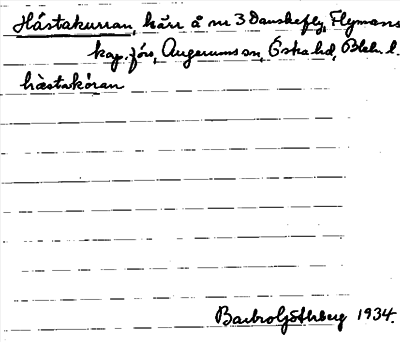 Håstakurran, kärr å nr 3 Danskefly, Flymans
kap. förs, Augerums sn, Östra hd, Blek. l.
hàstakóran
Barbro Götherg 1934.